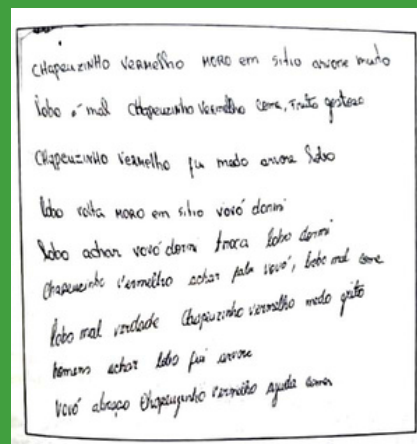 CHAPEUZINHO VERMELHO MORO em sitio arvore muito
lobo é mal Chapeuzinho Vermelho come, Fruta gostoso
CHAPEUZINHO Vermelho fui medo arvore lobo
lobo volta MORO em sitio vovó dormi
lobo achar vovó dormi troca lobo dormi
Chapeuzinho Vermelho achar fala vovó, lobo mal come
lobo mal verdade Chapeuzinho vermelho medo grito
homens achar lobo fui arvore
vovó abraço Chapeuzinho Vermelho ajuda comer